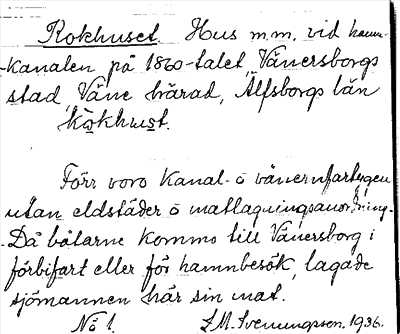 Kokhuset. Hus m.m. vid hamn-
-kanalen på 1860-talet, Vänersborgs
stad, Väne härad, Älfsborgs län
kökhust.
Förr voro Kanal- o vänernfartygen
utan eldstäder o matlagningsanordning-
- Då båtarne kommo till Vänersborg i
förbifart eller för hamnbesök, lagade
sjömannen här sin mat.
No 1. S.M. Svenungson, 1936.